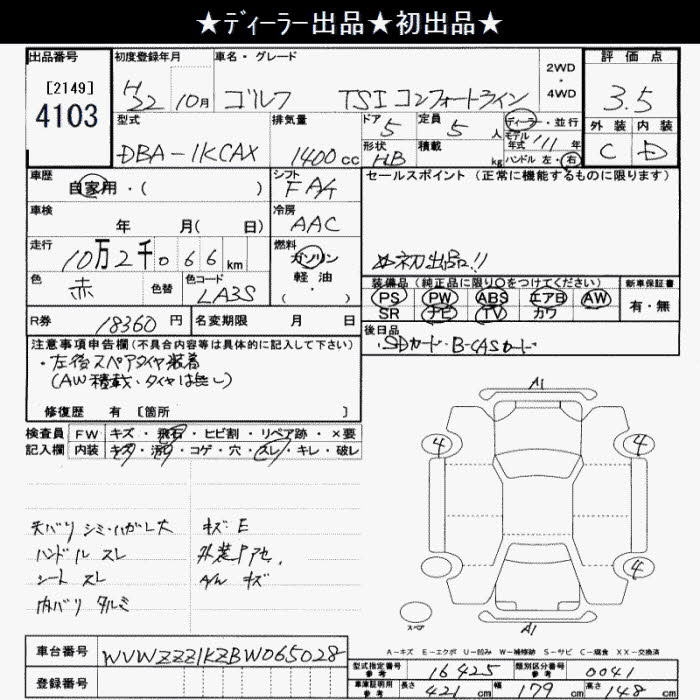 ★ディーラー出品★初出品★
出品番号
[2149]
4103
初度登録年月
H22 10月
車名・グレード
ゴルフ TSI コンフォートライン
2WD・4WD
評価点
3.5
外装 内装
C D
型式
DBA-1KCAX
排気量
1400cc
ドア 5
形状 HB
定員 5人
積載 kg
ディーラー・並行
モデル年式 '11年
ハンドル 左・右
車歴
自家用・( )
シフト
FA4
車検
年 月( 日)
冷房
AAC
走行
10万2千066km
燃料
ガソリン
軽油
・( )
色
赤
色替
色コード
LA3S
セールスポイント(正常に機能するものに限ります)
初出品!!
装備品(純正品に限り○をつけてください)
PS PW ABS エアB AW
SR ナビ TV カワ
新車保証書
有・無
R券
18360円
名変期限 月 日
後日品
・SDカード・B-CASカード
注意事項申告欄(不具合内容等は具体的に記入して下さい)
・左後スペアタイヤ装着
(AW積載、タイヤは無し)
修復歴 有[箇所 ]
検査員記入欄
FW キズ・飛石・ヒビ割・リペア跡・×要
内装 キズ・汚れ・コゲ・穴・スレ・キレ・破レ
天バリ シミ・ハガレ大
キズ E
ハンドル スレ
外装Pアセ.
シート スレ
A/W キズ
内バリ タルミ
A1
4 4
4
スペア
A1
A-キズ E-エクボ U-凹み W-補修跡 S-サビ C-腐食 XX-交換済
車台番号
WVWZZZ1KZBW065028
登録番号
型式指定番号 参考 16425
類別区分番号 参考 0041
車庫証明用 参考 長さ 421cm 幅 179cm 高さ 148cm